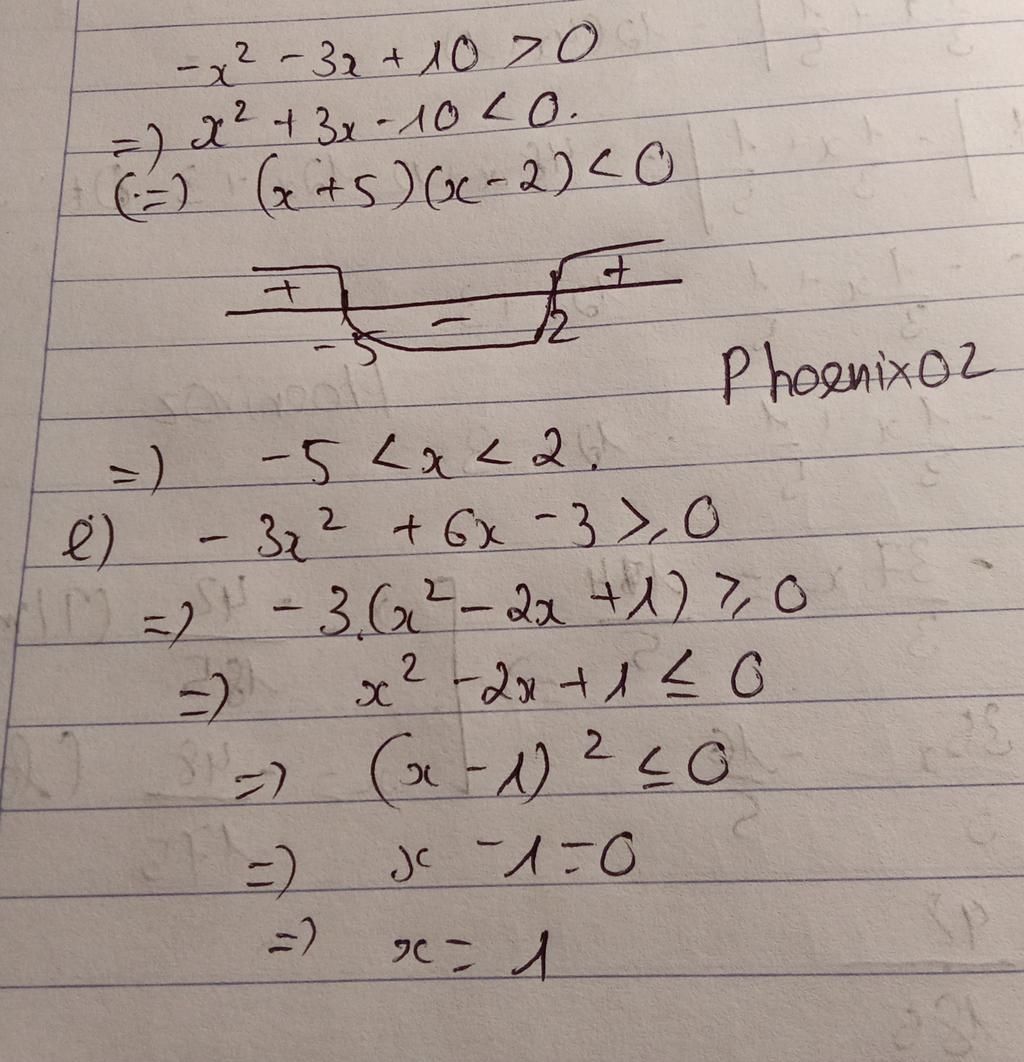 -x² - 3x + 10 > 0
=) x² + 3x - 10 < 0.
(=) (x + 5)(x - 2) < 0
+ - +
-5 2
Phoenix02
=) -5 < x < 2.
e) - 3x² + 6x - 3 ⩾ 0
=) - 3.(x² - 2x + 1) ⩾ 0
=) x² - 2x + 1 ≤ 0
=) (x - 1)² ≤ 0
=) x - 1 = 0
=) x = 1